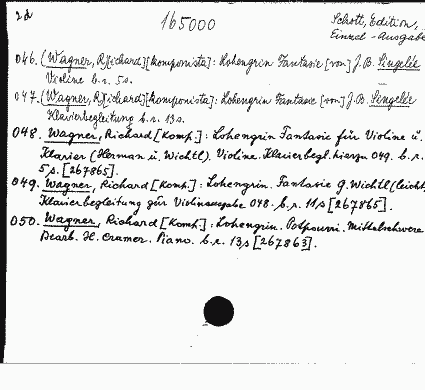 2d
165000
Schott, Edition,
Einzel-Ausgabe
046. (Wagner, R)[ichard][komponista]: Lohengrin Fantasie [von] J. B. Singelée
Violine b. r. 5 s.
047. (Wagner, R)[ichard][komponista]: Lohengrin Fantasie [von] J. B. Singelée
Klavierbegleitung b. r. 13 s.
048. Wagner, Richard [Komp.]: Lohengrin Fantasie für Violine u.
Klavier (Herman u. Wichtl). Violine. Klavierbegl. hierzu 049. b. r.
5 s. [267865].
049. Wagner, Richard [Komp.]: Lohengrin. Fantasie g. Wichtl (leicht)
Klavierbegleitung zur Violinausgabe 048. b. r. 11 s [267865].
050. Wagner, Richard [Komp.]: Lohengrin. Potpourri. Mittelschwere
Bearb. H. Cramer. Piano. b. r. 13 s [267863].